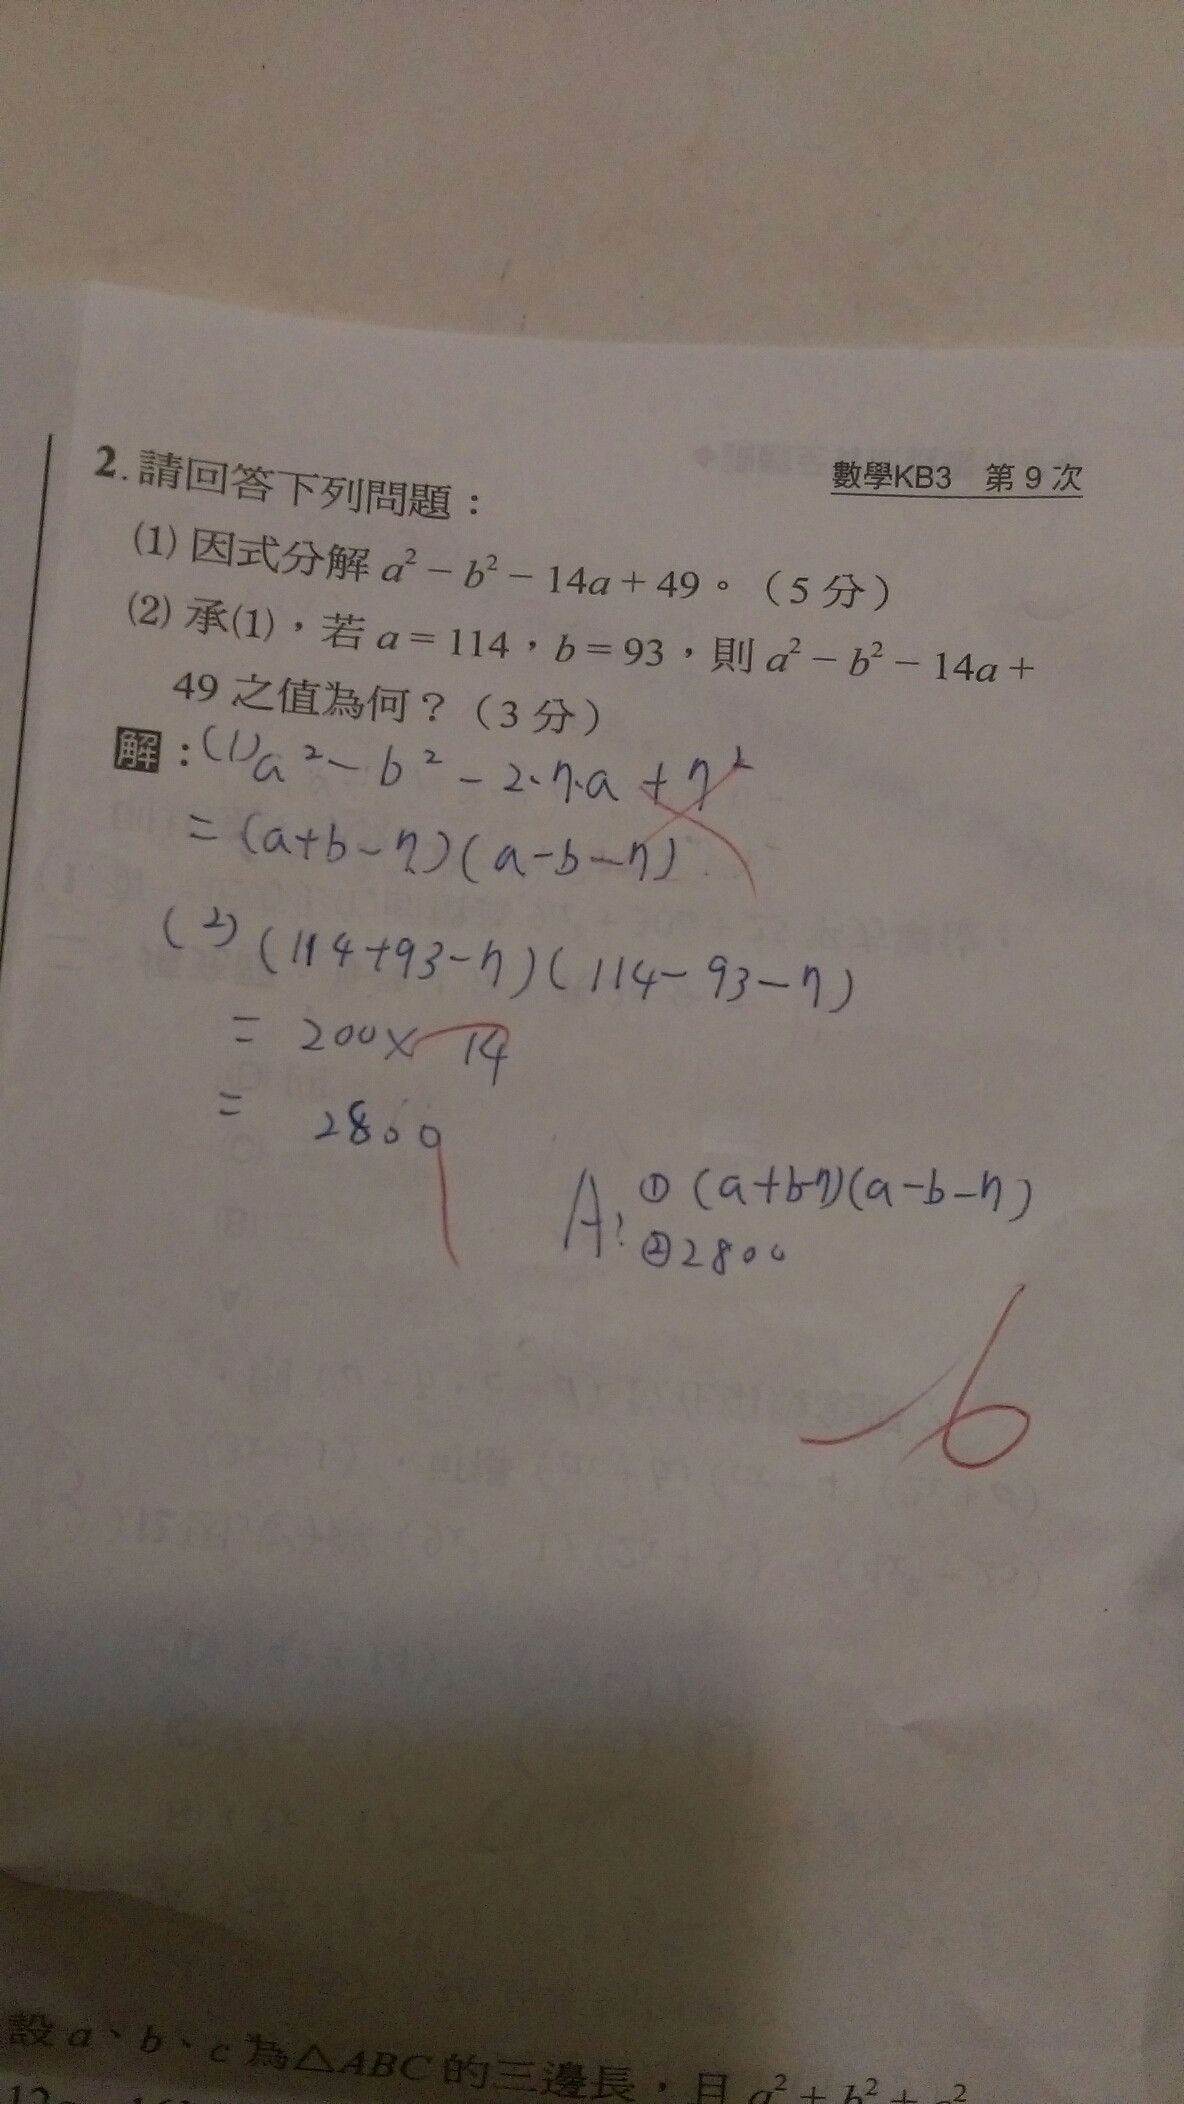 數學KB3 第9次
2.請回答下列問題：
(1) 因式分解 a² − b² − 14a + 49。（5分）
(2) 承(1)，若 a = 114，b = 93，則 a² − b² − 14a +
49 之值為何？（3分）
解：(1) a² − b² − 2·7·a + 7²
= (a+b−7)(a−b−7)
(2) (114+93−7)(114−93−7)
= 200× 14
= 2800
A: ① (a+b-7)(a−b−7)
② 2800
−6
設 a、b、c 為△ABC 的三邊長，且 a² + b² + c²